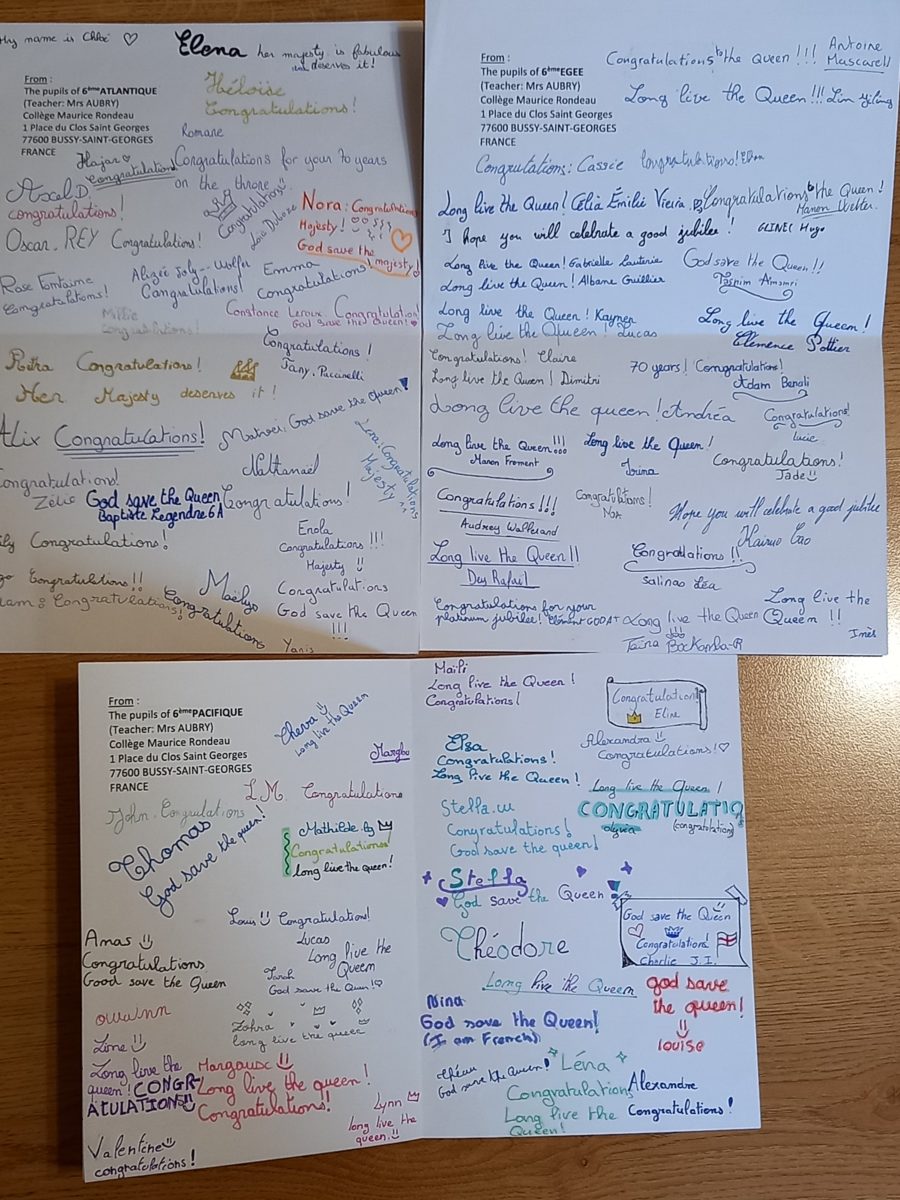 My name is Chloé
Elena her majesty is fabulous
and deserves it!
From :
The pupils of 6èmeATLANTIQUE
(Teacher: Mrs AUBRY)
Collège Maurice Rondeau
1 Place du Clos Saint Georges
77600 BUSSY-SAINT-GEORGES
FRANCE
Héloïse
Congratulations!
Romane
Congratulations for your 70 years
on the throne
Hajar
Congratulations!
Axcel D
congratulations!
Congratulations
Nora: Congratulations
Majesty!
God save the
majesty!
Oscar. REY Congratulations!
Rose Fontaine
Congratulations!
Alizée
Congratulations!
Emma
Congratulations!
Millie
Congratulations!
Constance Leroux. Congratulation
God save the Queen!
Congratulations!
Tany. Paccinelli
Retra Congratulations!
Her Majesty deserves it!
Alix Congratulations!
Matvei: God save the Queen!
Nathanaël
Congratulations!
Lena: Congratulations
Majesty
Congratulations!
Zélie
God save the Queen
Baptiste Legendre 6A
Enola
Congratulations!!!
Majesty!!
Congratulations!
Congratulations!!
Congratulations!
Maëlys
Congratulations
Congratulations
God save the Queen
!!!
Yanis
From :
The pupils of 6èmeEGEE
(Teacher: Mrs AUBRY)
Collège Maurice Rondeau
1 Place du Clos Saint Georges
77600 BUSSY-SAINT-GEORGES
FRANCE
Congratulations to the Queen!!!
Antoine
Mascarell
Long live the Queen!!!
Congrutations: Cassie
Congratulations!
Long live the Queen! Célia Émilie Vieira
Congratulations to the Queen!
Manon
I hope you will celebrate a good jubilee!
GLINEC Hugo
Long live the Queen! Gabrielle
God save the Queen!!
Tasnim
Long live the Queen! Albane Guillier
Long live the Queen! Kaynen
Long live the Queen!
Clémence Pottier
Long live the Queen! Lucas
Congratulations! Claire
70 years! Congratulations!
Adam Benali
Long live the Queen! Dimitri
Long live the queen! Andréa
Congratulations!
Lucie
Long live the Queen!!!
Manon Froment
Long live the Queen!
Irina
Congratulations!
Jade
Congratulations!!!
Audrey
Congratulations!
Noa
Hope you will celebrate a good jubilee
Long live the Queen!!
Dey Rafael
Congratulations!!
Salinas Léa
Congratulations for your
platinum jubilee!
Long live the Queen
Taïna
Long live the
Queen!!
Inès
From :
The pupils of 6èmePACIFIQUE
(Teacher: Mrs AUBRY)
Collège Maurice Rondeau
1 Place du Clos Saint Georges
77600 BUSSY-SAINT-GEORGES
FRANCE
Long live the Queen
Margau
L.M. Congratulations
John. Congrulations
Thomas
God save the queen!
Mathilde.
Congratulations
long live the Queen!
Louis Congratulation!
Anas
Congratulations
Good save the Queen
Lucas
Long live the
Queen
Tarah
God save the Queen!
Owainn
Zohra
long live the queen
Line
Long live the
queen! CONGR
ATULATION!
Margaux
Long live the queen!
Congratulations!
Lynn
long live the
queen.
Valentine
congratulations!
Maïli
Long live the Queen!
Congratulations!
Congratulation!
Eline
Elsa
Congratulations!
Long live the Queen!
Alexandra
Congratulations!
Stella.W
Congratulations!
God save the queen!
Long live the Queen!
CONGRATULATIO
(congratulation)
Stella
God save the Queen
God save the Queen
Congratulations!
Charlie J.I.
Théodore
Long live the Queen
god save
the queen!
louise
Nina
God save the Queen!
(I am French)
God save the Queen!
Léna
Congratulations
Long live the
Queen!
Alexandre
Congratulations!